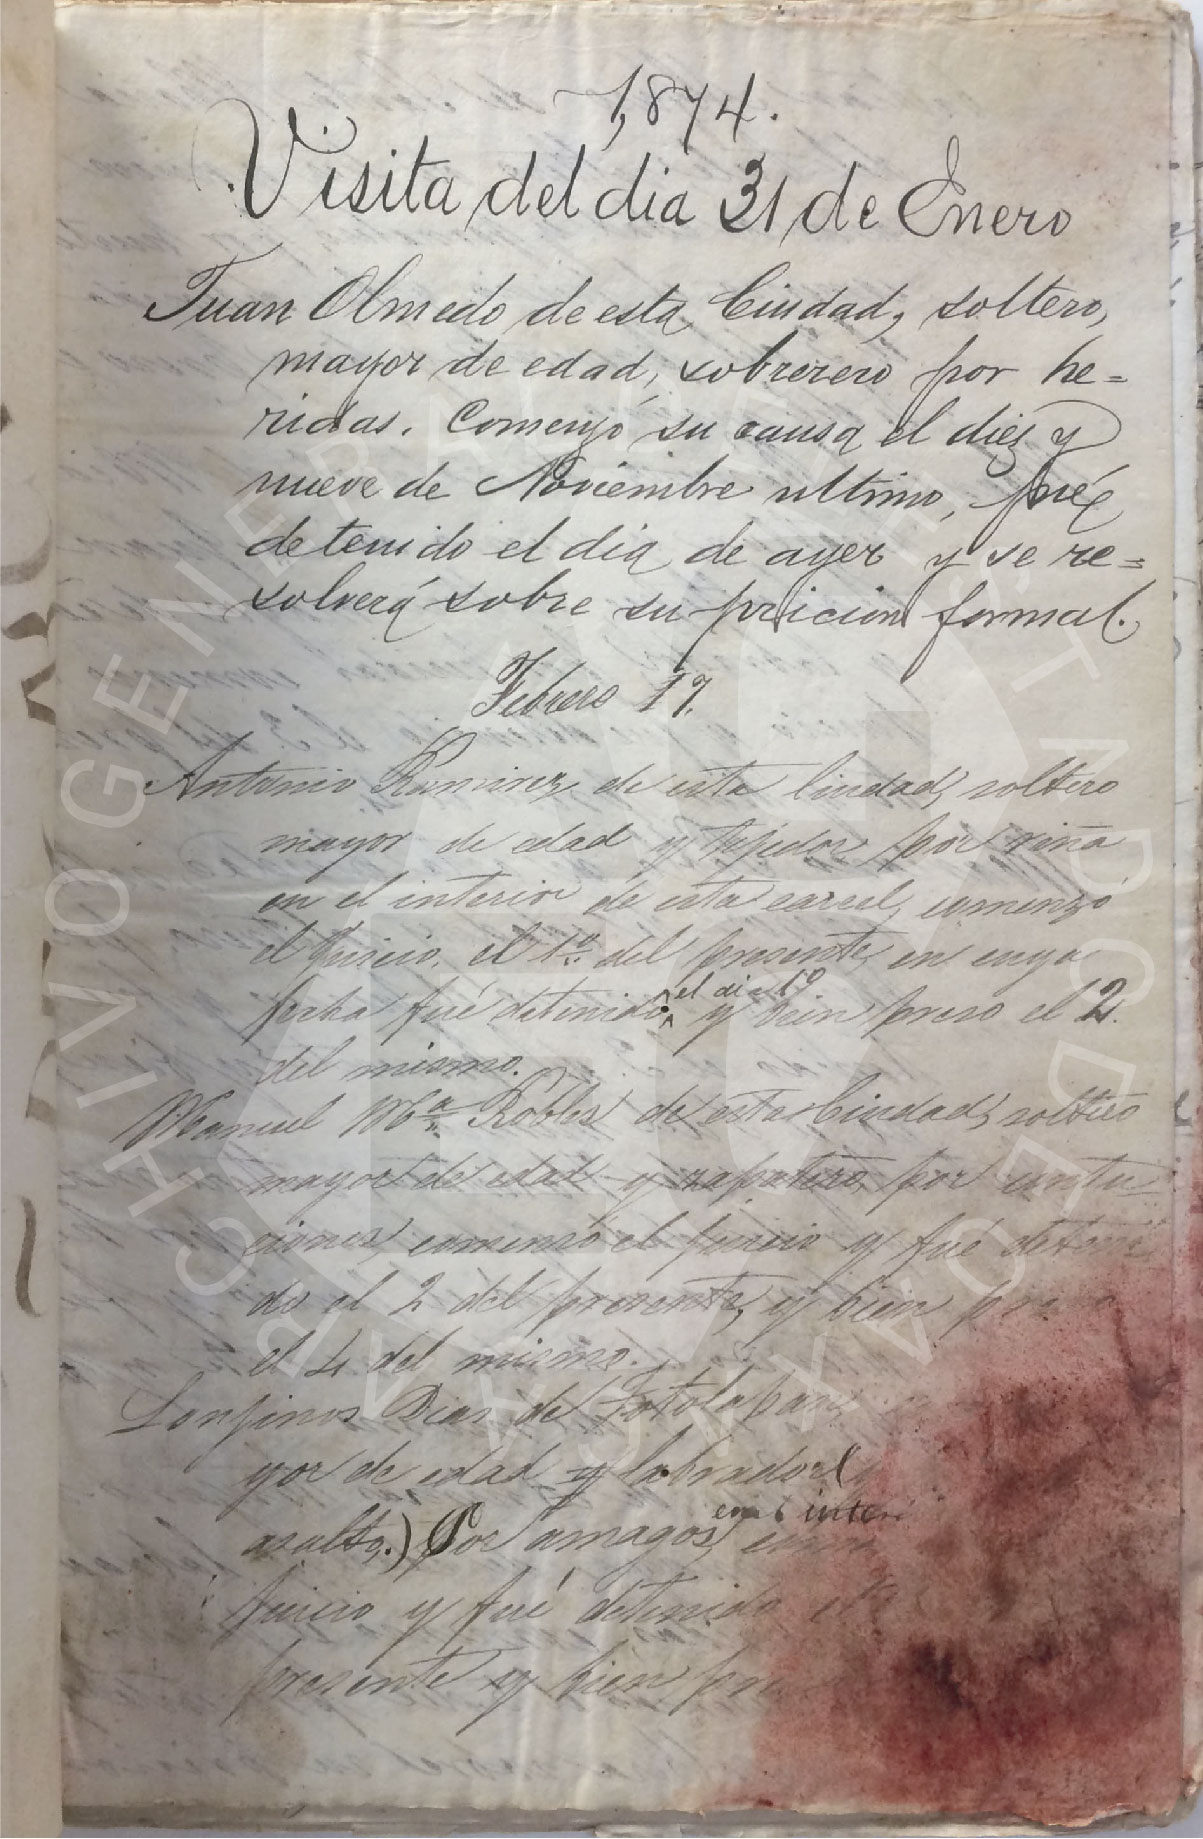 1,874.
Visita del dia 31 de Enero
Juan Olmedo de esta Ciudad, soltero,
mayor de edad, sobrerero por he=
ridas. Comenzó su causa el diez y
nueve de Noviembre ultimo, fué
detenido el dia de ayer y se re=
solverá sobre su pricion formal.
Febrero 17.
Antonio Ramirez, de esta Ciudad, soltero
mayor de edad y tejedor por riña
en el interior de esta carcel, comenzó
el juicio, el 1º del presente, en cuya
el dia 1º
fecha fué detenido y bien preso el 2.
del mismo.
Manuel Mª Robles de esta Ciudad, soltero
mayor de edad y zapatero, por contu-
ciones, comensó el juicio y fué deteni
do el 2 del presente, y bien
el 4 del mismo.
Longinos Dias de
yor de edad y labrador (
inter
asalto.) Por amagos,
juicio y fué detenido
presente y bien
ARCHIVO GENERAL DEL ESTADO DE OAXACA